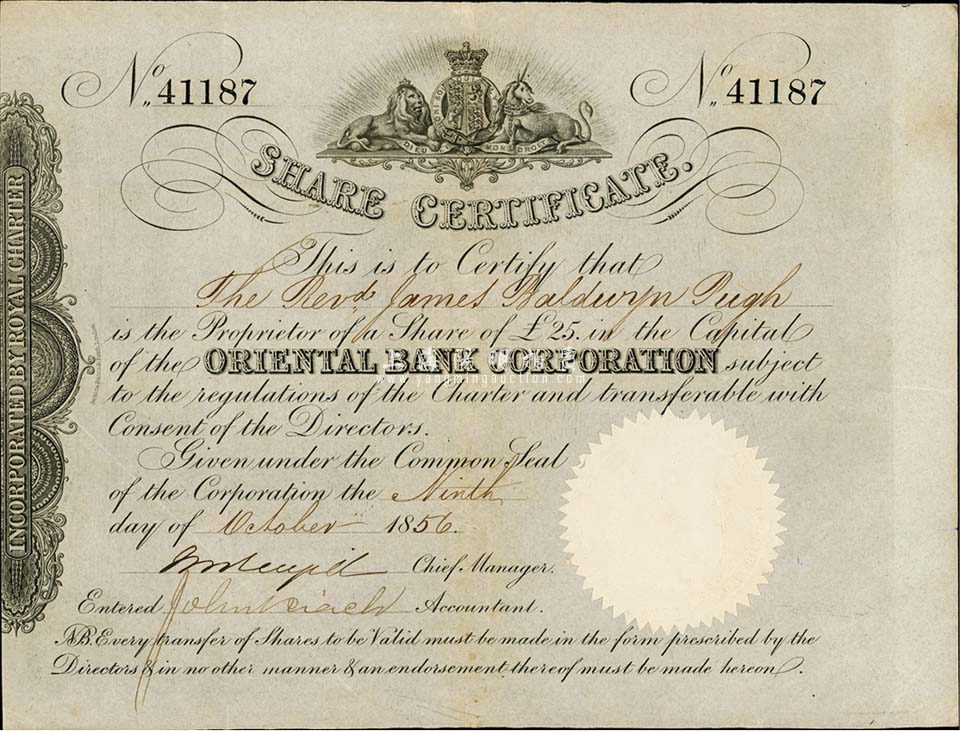 No 41187
No 41187
DIEU ET MON DROIT
SHARE CERTIFICATE.
This is to Certify that
The Revd. James Baldwyn Pugh
is the Proprietor of a Share of £25. in the Capital
of the ORIENTAL BANK CORPORATION subject
to the regulations of the Charter and transferable with
Consent of the Directors.
Given under the Common Seal
of the Corporation the Ninth
day of October 1856.
Chief Manager.
Entered John Accountant.
NB. Every transfer of Shares to be Valid must be made in the form prescribed by the
Directors & in no other manner & an endorsement thereof must be made hereon.
INCORPORATED BY ROYAL CHARTER
www.yangmingauction.com